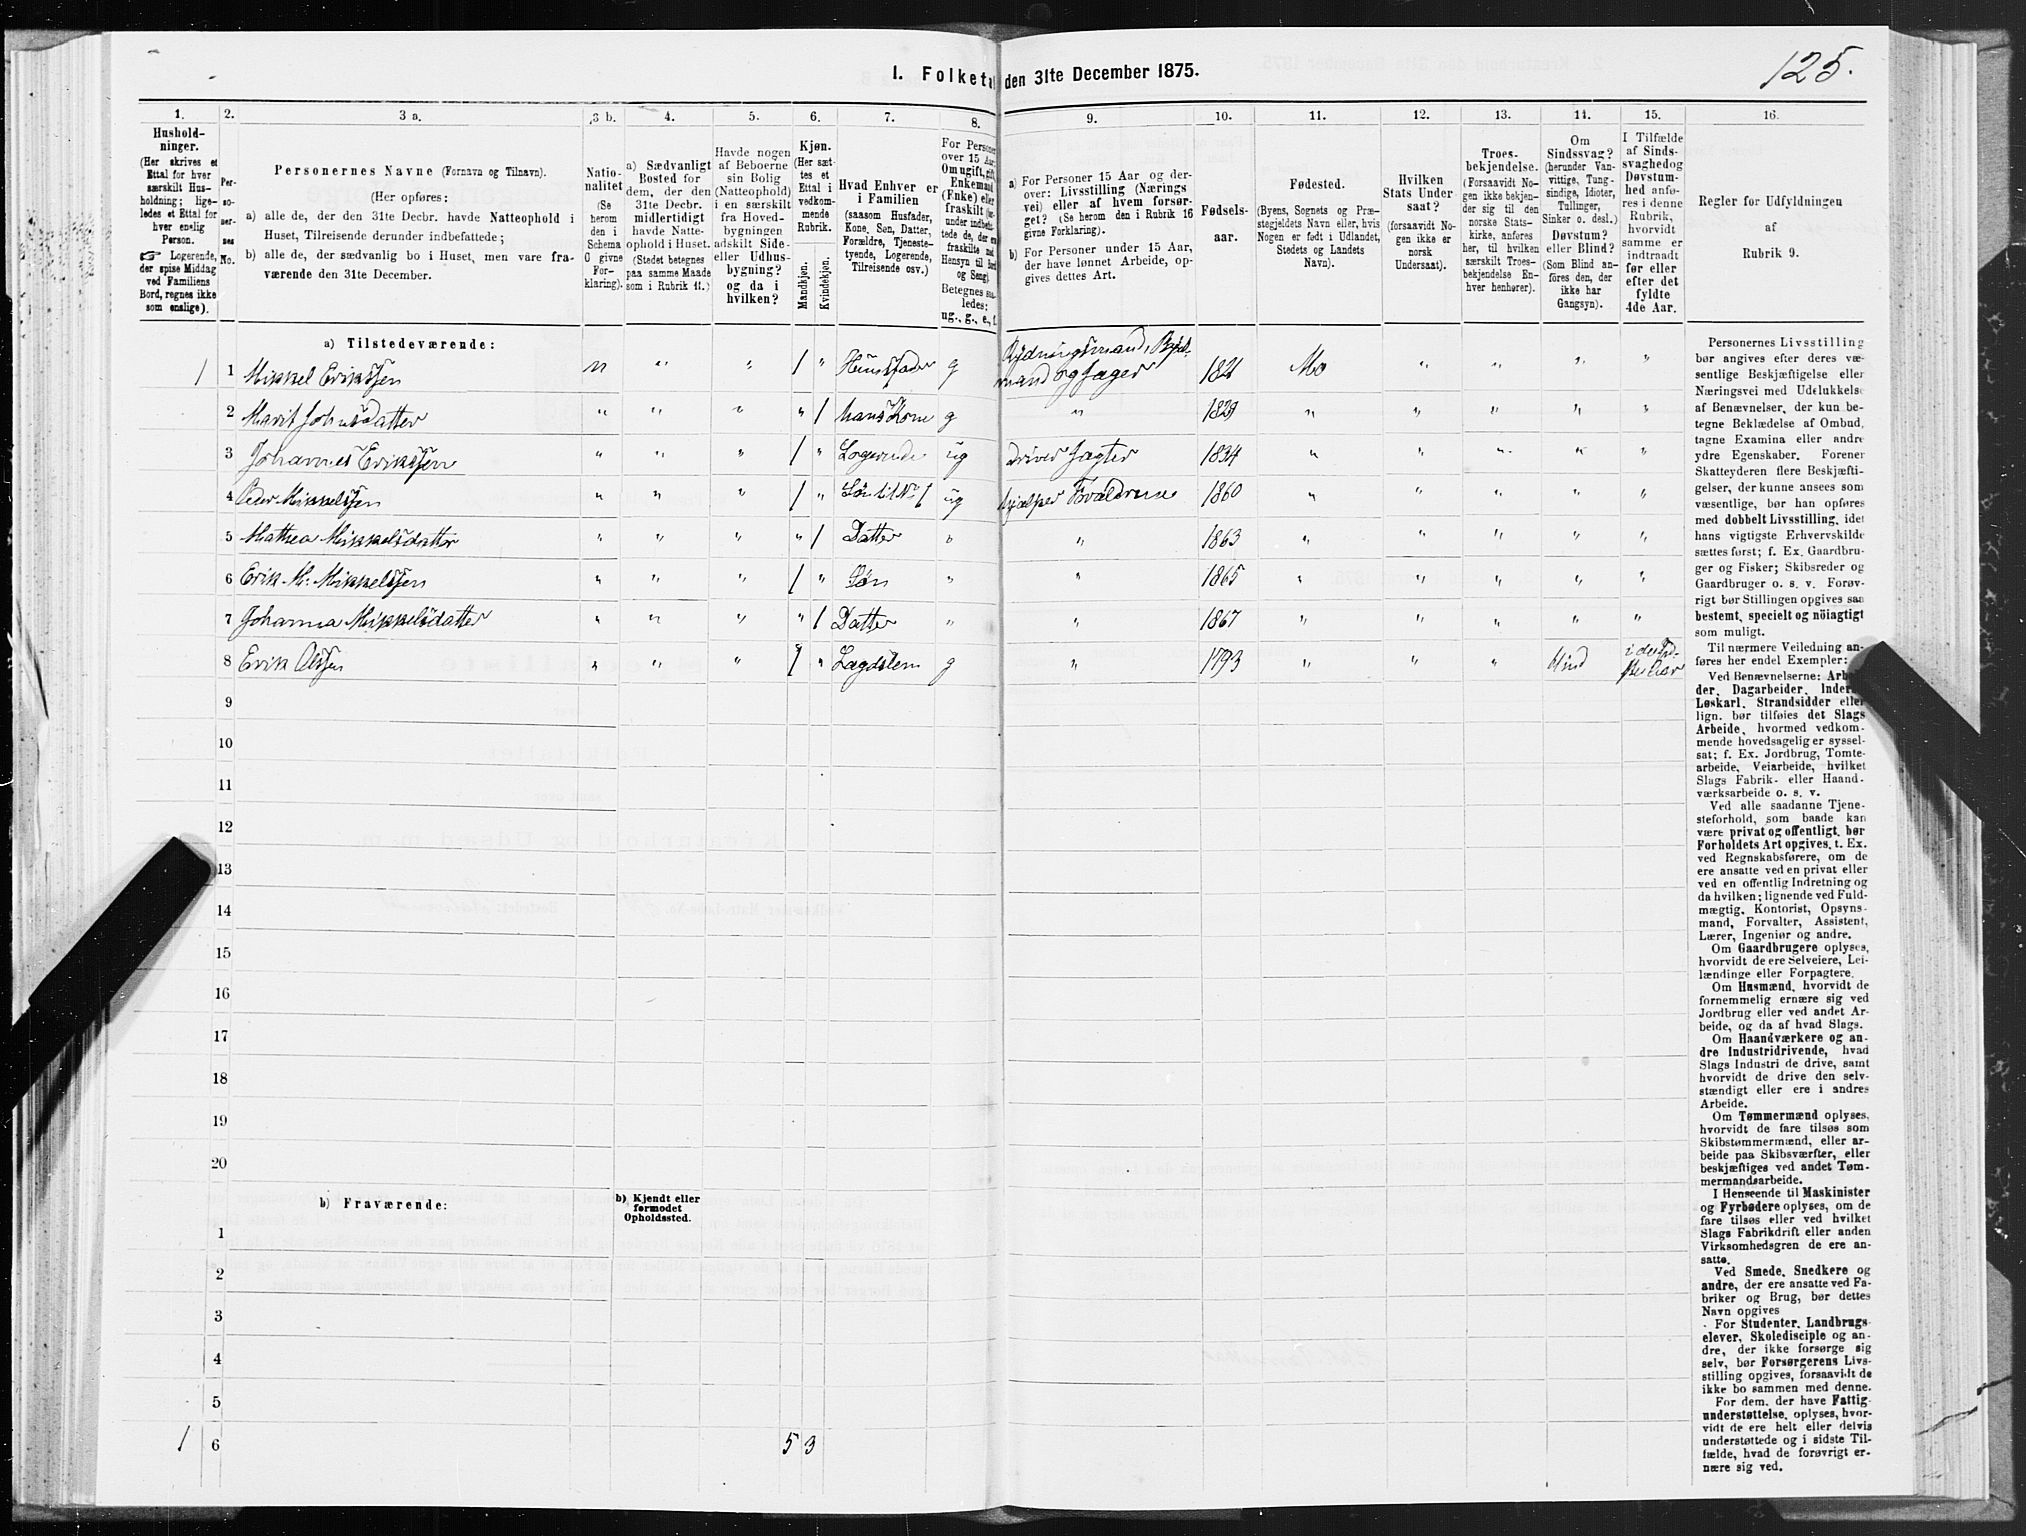 125.
I. Folketal den 31te December 1875.
1. 2. 3 a. 3 b. 4. 5. 6. 7. 8. 9. 10. 11. 12. 13. 14. 15. 16.
Hushold-
ninger.
(Her skrives et
Ettal for hver
særskilt Hus-
holdning; lige-
ledes et Ettal for
hver enslig
Person.
☞ Logerende,
der spise Middag
ved Familiens
Bord, regnes ikke
som enslige).
Per-
so-
ner-
nes
No.
Personernes Navne (Fornavn og Tilnavn).
(Her opføres:
a) alle de, der den 31te Decbr. havde Natteophold i
Huset, Tilreisende derunder indbefattede;
b) alle de, der sædvanlig bo i Huset, men vare fra-
værende den 31te December.
Natio-
nalitet
(Se
herom
den i
Schema
O givne
For-
klaring).
a) Sædvanligt
Bosted for
dem, der den
31te Decbr.
midlertidigt
havde Natte-
ophold i Huset.
(Stedet betegnes
paa samme Maade
som i Rubrik 11.)
Havde nogen
af Beboerne
sin Bolig
(Natteophold)
i en særskilt
fra Hoved-
bygningen
adskilt Side-
eller Udhus-
bygning?
og da i
hvilken?
Kjøn.
(Her sæt-
tes et
Ettal i
vedkom-
mende
Rubrik.
Mandkjøn.
Kvindekjøn.
Hvad Enhver er
i Familien
(saasom Husfader,
Kone, Søn, Datter,
Forældre, Tjeneste-
tyende, Logerende,
Tilreisende osv.)
For Personer
over 15 Aar:
Om ugift, gift,
Enkemand
(Enke) eller
fraskilt
Betegnes saa-
ledes:
ug., g., e., f.
a) For Personer 15 Aar og der-
over: Livsstilling (Nærings
vei) eller af hvem forsør-
get? (Se herom den i Rubrik 16
givne Forklaring.)
b) For Personer under 15 Aar,
der have lønnet Arbeide, op-
gives dettes Art.
Fødsels-
aar.
Fødested.
(Byens, Sognets og Præ-
stegjeldets Navn eller, hvis
Nogen er født i Udlandet,
Stedets og Landets
Navn).
Hvilken
Stats Under
saat?
(forsaavidt No-
gen ikke er
norsk
Undersaat).
Troes-
bekjendelse.
(Forsaavidt No-
gen ikke bekjen-
der sig til den
norske Stats-
kirke, anføres
her, til hvilken
særskilt Troes-
bekjendelse En-
hver henhører).
Om
Sindssvag?
(herunder Van-
vittige, Tung-
sindige, Idioter,
Tullinger,
Sinker o. desl.)
Døvstum?
eller Blind?
(Som Blind an-
föres den, der
ikke har
Gangsyn).
I Tilfælde
af Sinds-
svaghed og
Døvstum-
hed anfø-
res i denne
Rubrik,
hvorvidt
samme er
indtraadt
før eller
efter det
fyldte
4de Aar.
Regler for Udfyldningen
af
Rubrik 9.
a) Tilstedeværende:
1 1 Mikkel Eriksen n " " 1 " Huusfader g Rydningsmand, mand og Jager 1821 Mo " " " "
2 Marit Johnsdatter " " " " 1 hans Kone g " 1829 " " " " "
3 Johannes Eriksen " " " 1 " Logerende ug driver Jagter 1834 " " " " "
4 Peder Mikkelsen " " " 1 " Søn til No 1 ug hjælper Forældrene 1860 " " " " "
5 Mathea Mikkelsdatter " " " " 1 Datter " " 1863 " " " " "
6 Erik M. Mikkelsen " " " 1 " Søn " " 1865 " " " " "
7 Johanna Mikkelsdatter " " " " 1 Datter " " 1867 " " " " "
8 Erik Olsen " " " 1 " Lægdslem g " 1793 " " " blind
9
10
11
12
13
14
15
16
17
18
19
20
b) Fraværende:
b) Kjendt eller
formodet
Opholdssted.
1
2
3
4
5
1 6 5 3
Personernes Livsstilling
bør angives efter deres væ-
sentlige Beskjæftigelse eller
Næringsvei med Udelukkelse
af Benævnelser, der kun be-
tegne Beklædelse af Ombud,
tagne Examina eller andre
ydre Egenskaber. Forener
Skatteyderen flere Beskjæfti-
gelser, der kunne ansees som
væsentlige, bør han opføres
med dobbelt Livsstilling, idet
hans vigtigste Erhvervskilde
sættes først; f. Ex. Gaardbru-
ger og Fisker; Skibsreder og
Gaardbruger o. s. v. Forøv-
rigt bør Stillingen opgives saa
bestemt, specielt og nöiagtigt
som muligt.
Til nærmere Veiledning an-
føres her endel Exempler:
Ved Benævnelserne: Arbei-
der, Dagarbeider, Inderst,
Løskarl, Strandsidder eller
lign. bør tilføies det Slags
Arbeide, hvormed vedkom-
mende hovedsagelig er syssel-
sat; f. Ex. Jordbrug, Tomte-
arbeide, Veiarbeide, hvilket
Slags Fabrik- eller Haand-
værksarbeide o. s. v.
Ved alle saadanne Tjene-
steforhold, som baade kan
være privat og offentligt, bør
Forholdets Art opgives, t. Ex.
ved Regnskabsførere, om de
ere ansatte ved en privat eller
ved en offentlig Indretning og
da hvilken; lignende ved Fuld-
mægtig, Kontorist, Opsyns-
mand, Forvalter, Assistent,
Lærer, Ingeniør og andre.
Om Gaardbrugere oplyses,
hvorvidt de ere Selveiere, Lei-
lændinge eller Forpagtere.
Om Husmænd, hvorvidt de
fornemmelig ernære sig ved
Jordbrug eller ved andet Ar-
beide, og da af hvad Slags.
Om Haandværkere og an-
dre Industridrivende, hvad
Slags Industri de drive, samt
hvorvidt de drive den selv-
stændigt eller ere i andres
Arbeide.
Om Tømmermænd oplyses,
hvorvidt de fare tilsøs som
Skibstømmermænd, eller ar-
beide paa Skibsværfter, eller
beskjæftiges ved andet Tøm-
mermandsarbeide.
I Henseende til Maskinister
og Fyrbødere oplyses, om de
fare tilsøs eller ved hvilket
Slags Fabrikdrift eller anden
Virksomhedsgren de ere an-
satte.
Ved Smede, Snedkere og
andre, der ere ansatte ved Fa-
briker og Brug, bør dettes
Navn opgives
For Studenter, Landbrugs-
elever, Skoledisciple og an-
dre, der ikke forsørge sig
selv, bør Forsørgerens Livs-
stilling opgives, forsaavidt de
ikke bo sammen med denne.
For dem, der have Fattig-
understøttelse, oplyses, hvor-
vidt de ere helt eller delvis
understøttede og i sidste Til-
fælde, hvad de forøvrigt er-
nære sig ved.